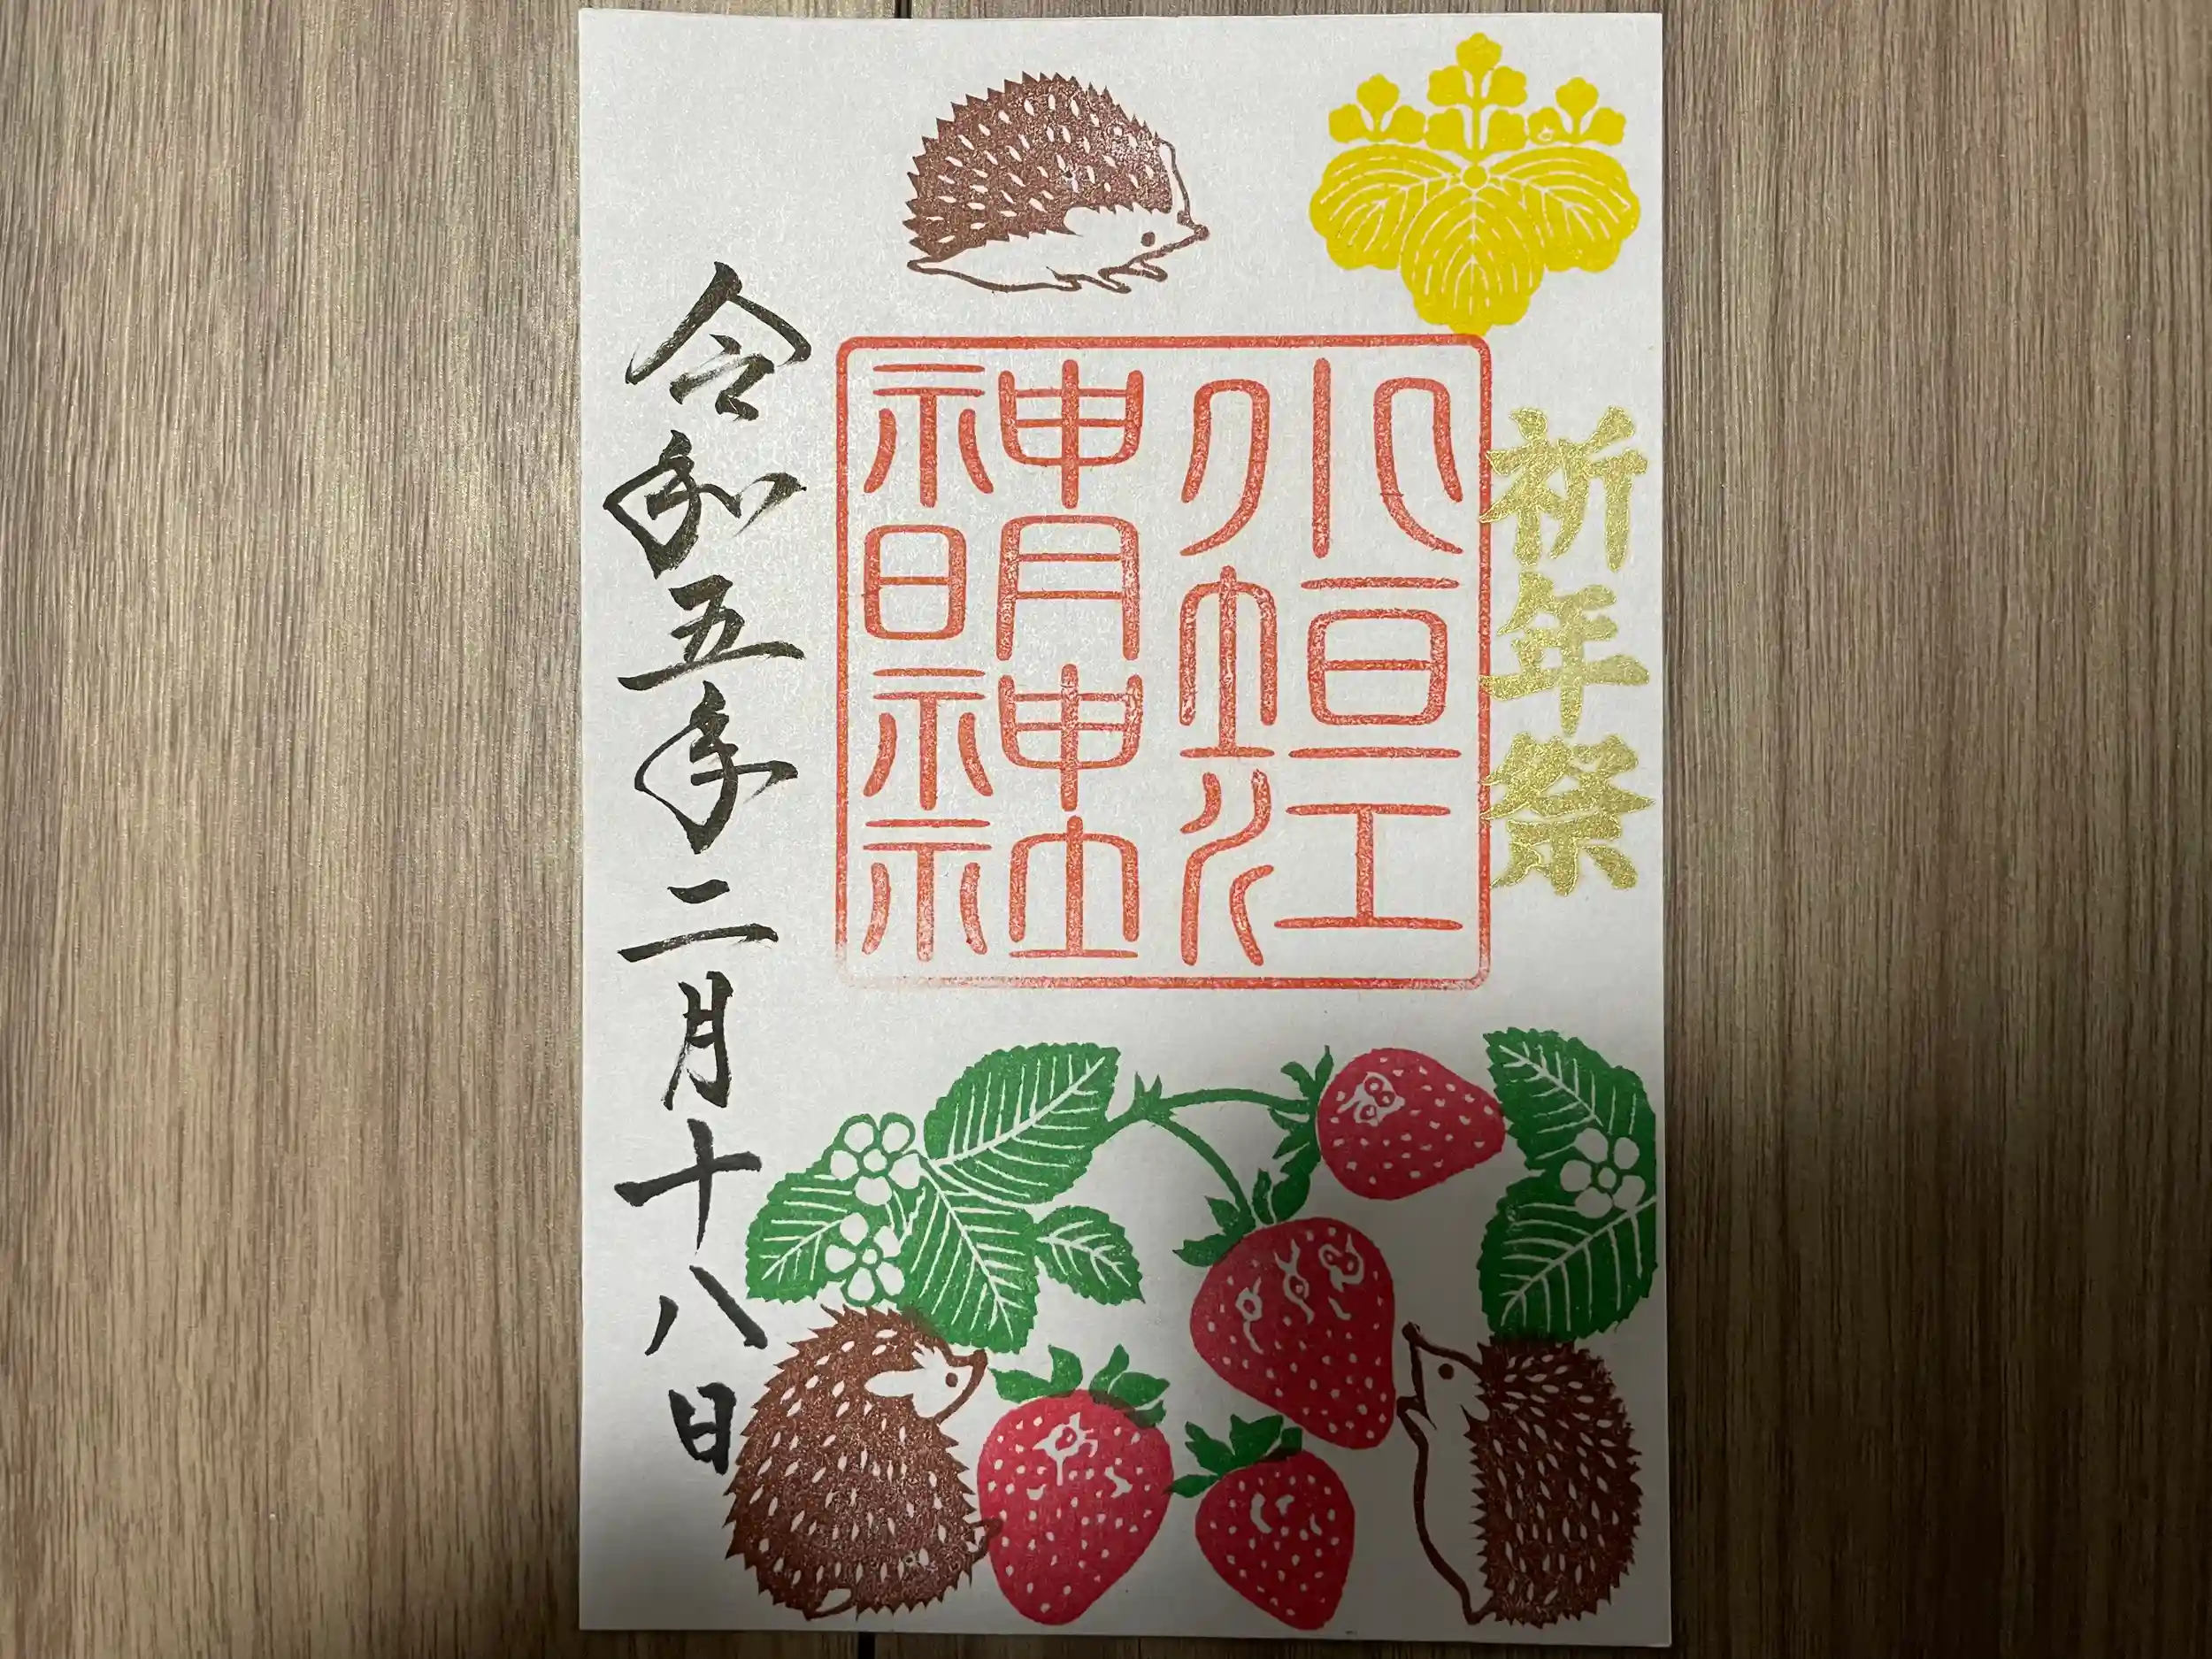 祈年祭
小垣江
神明神社
令和五年二月十八日